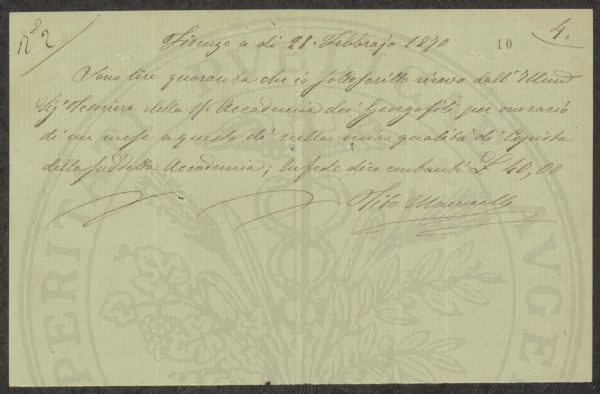 N° 2
4.
Firenze a dì 28. Febbrajo 1870
10
Sono lire quaranta che io sottoscritto ricevo dall'Illmo
Sigr Tesoriere della R. Accademia dei Georgofili per onorario
di un mese a questo dì nella mia qualità di Copista
della suddetta Accademia; In fede dico contanti £ 40,00
Tito
PERITATI PVBLICAE AVGE